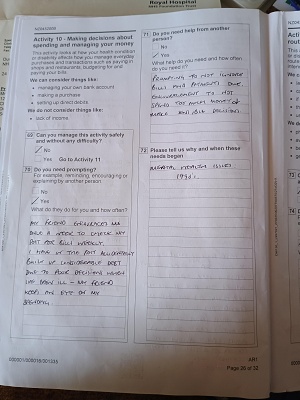 Royal Hospital
Activity 10 - Making decisions about
spending and managing your money
This activity looks at how your health condition
or disability affects how you manage everyday
purchases and transactions such as paying in
shops and restaurants, budgeting for and
paying your bills.
We can consider things like:
• managing your own bank account
• making a purchase
• setting up direct debits
We do not consider things like:
• lack of income
69 Can you manage this activity safely
and without any difficulty?
No
Yes Go to Activity 11
70 Do you need prompting?
For example, reminding, encouraging or
explaining by another person
No
Yes
What do they do for you and how often?
MY FRIEND ENCOURAGES ME
ONCE A WEEK TO CHECK MY
POST FOR BILLS WEEKLY.
I HAVE IN THE PAST
BUILT UP CONSIDERABLE DEBT
DUE TO POOR DECISIONS WHEN
I'VE BEEN ILL - MY FRIEND
KEEPS AN EYE ON MY
SPENDING.
71 Do you need help from another
person?
No
Yes
What help do you need and how often
do you need it?
PROMPTING TO NOT IGNORE
BILLS AND PAYMENTS DUE.
ENCOURAGEMENT TO NOT
SPEND TOO MUCH MONEY OR
MAKE ANY BAD DECISIONS
72 Please tell us why and when these
needs began
MENTAL HEALTH ISSUES
AR1
Page 26 of 32